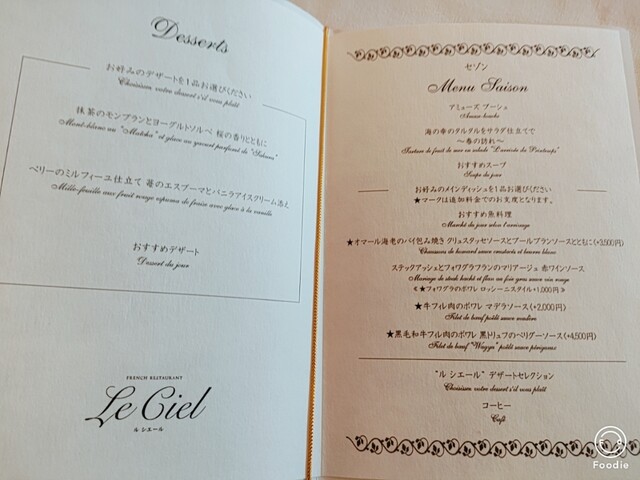 Desserts
お好みのデザートを1品お選びください
Choisissez votre dessert s'il vous plaît
抹茶のモンブランとヨーグルトソルベ 桜の香りとともに
Mont-blanc au "Matcha" et glace au yaourt parfumé de "Sakura"
ベリーのミルフィーユ仕立て 苺のエスプーマとバニラアイスクリーム添え
Mille-feuille aux fruit rouge espuma de fraise avec glace à la vanille
おすすめデザート
Dessert du jour
FRENCH RESTAURANT
Le Ciel
ル シエール
セゾン
Menu Saison
アミューズ ブーシュ
Amuse bouche
海の幸のタルタルをサラダ仕立てで
～春の訪れ～
Tartare de fruit de mer en salade "L'arrivée du Printemps"
おすすめスープ
Soupe du jour
お好みのメインディッシュを1品お選びください
★マークは追加料金でのお支度となります。
おすすめ魚料理
Marché du jour selon l'arrivage
★オマール海老のパイ包み焼き クリュスタッセソースとブールブランソースとともに(+3,500円)
Chaussons de homard sauce crustacés et beurre blanc
ステックアッシェとフォワグラフランのマリアージュ 赤ワインソース
Mariage de steak haché et flan au foie gras sauce vin rouge
≪★フォワグラのポワレ ロッシーニスタイル+1,000円≫
★牛フィレ肉のポワレ マデラソース(+2,000円)
Filet de bœuf poêlé sauce madère
★黒毛和牛フィレ肉のポワレ 黒トリュフのペリグーソース(+4,500円)
Filet de bœuf "Wagyu" poêlé sauce périgueux
"ル シエール" デザートセレクション
Choisissez votre dessert s'il vous plaît
コーヒー
Café
Foodie